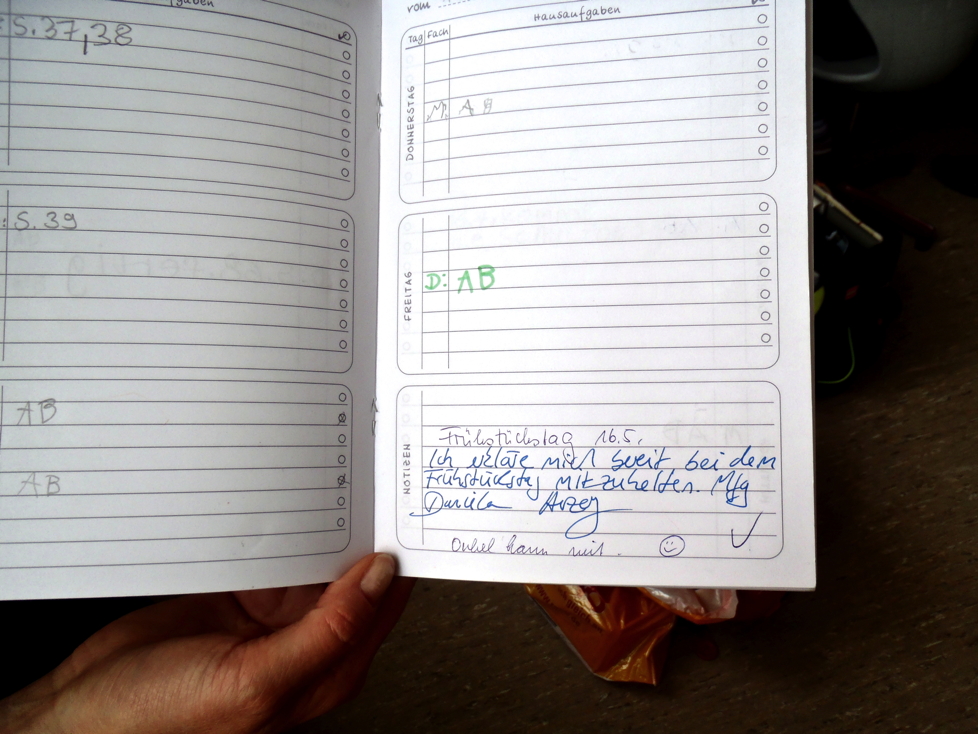 S. 37, 38
: S. 39
AB
AB
vom
Hausaufgaben
Tag Fach
DONNERSTAG
M: AB
FREITAG
D: AB
NOTIZEN
Frühstückstag 16.5.
Ich erkläre mich bereit bei dem
Frühstückstag mitzuhelfen. Mfg
Daniela
Onkel kann mit. ☺ ✓